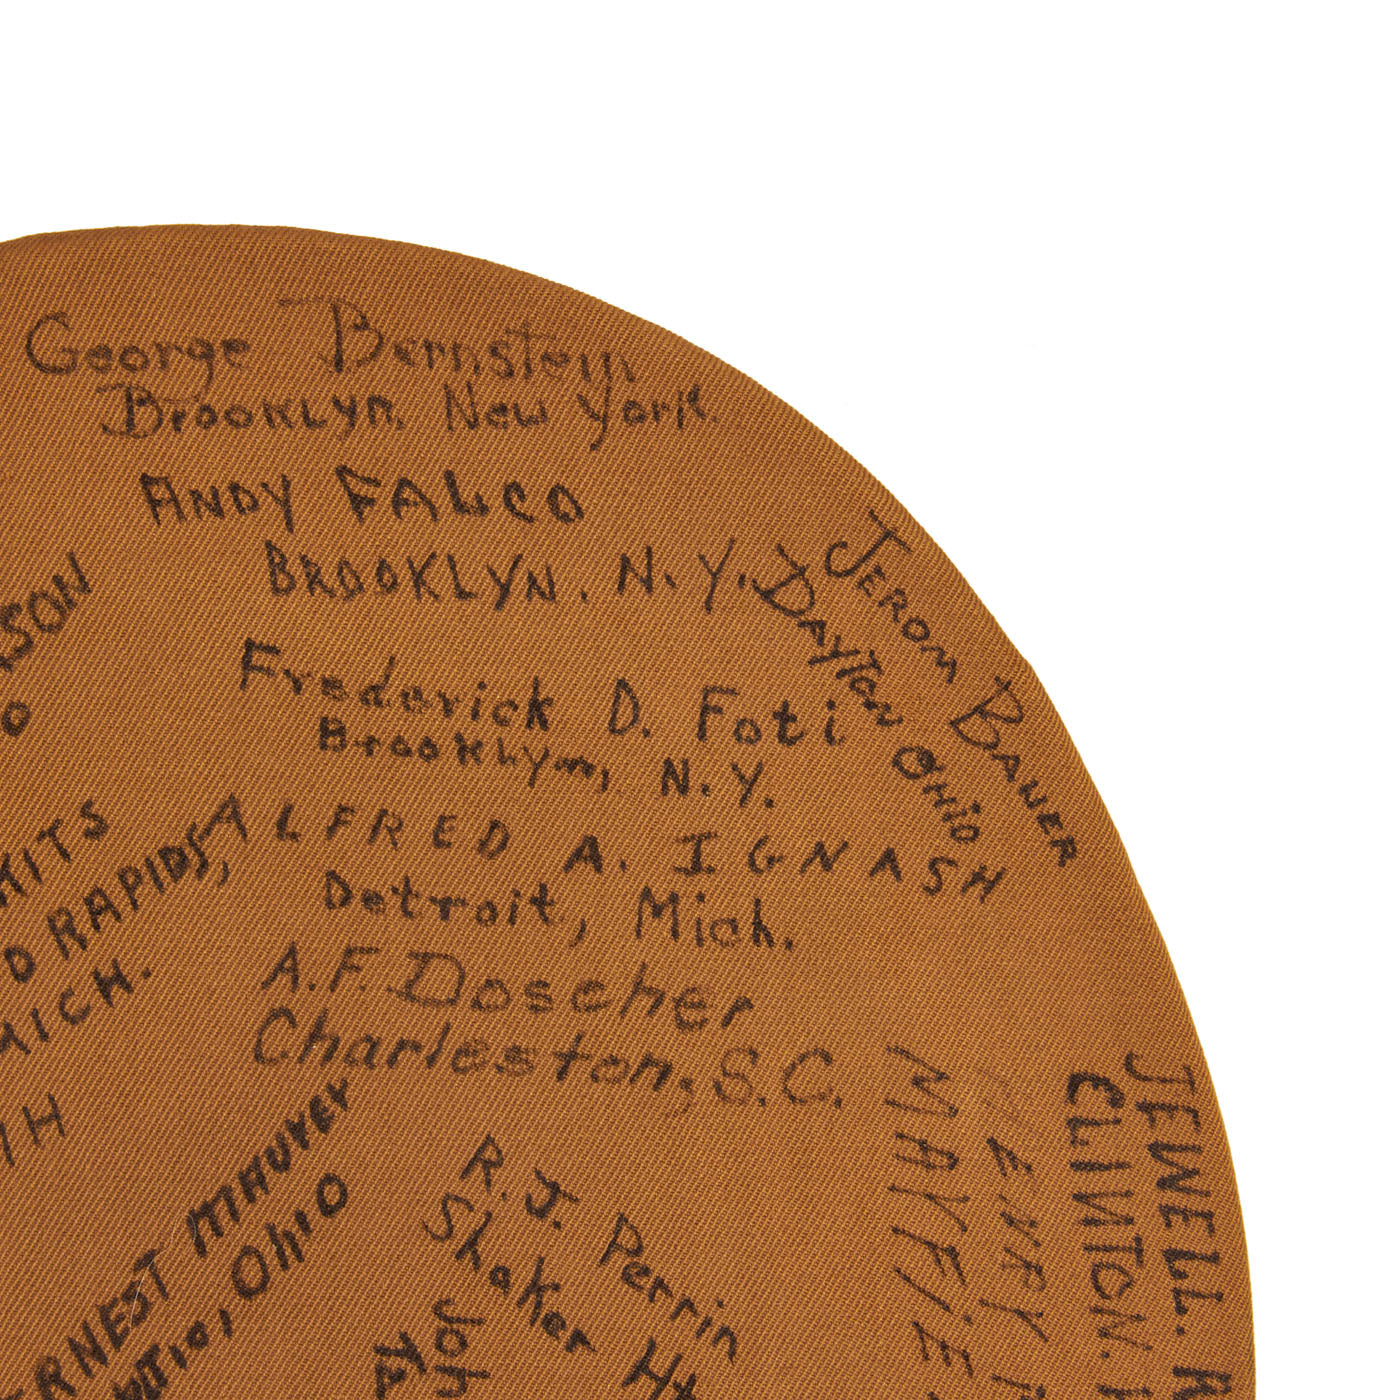 George Bernstein
Brooklyn, New York.
ANDY FALCO
BROOKLYN. N.Y.
JEROM BAUER
DAYTON OHIO
Frederick D. Foti
Brooklyn, N.Y.
ALFRED A. IGNASH
Detroit, Mich.
A.F. Doscher
Charleston, S.C.
SON
O
KITS
D RAPIDS,
MICH.
TH
ERNEST MAUREY
Ohio
R. J. Perrin
Shaker Ht
Joh
HENRY
MAYFIE
JEWELL.
CLINTON.